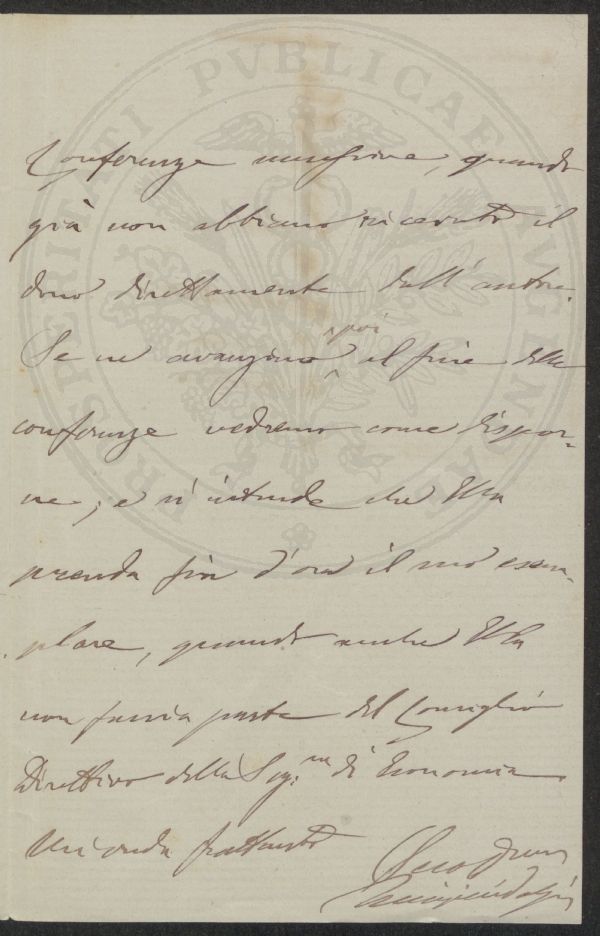 PROSPERITATI PVBLICAE AVGENDAE
Conferenze, quando
già non abbiano ricevuto il
dono direttamente dall'autore.
Se ne avanzino poi al fine delle
conferenze vedremo come dispor-
ne; e s'intende che Ella
prenda fin d'ora il suo esem-
plare, quando anche Ella
non faccia parte del Consiglio
Direttivo della Soc. di Economia.
Mi creda frattanto
Suo